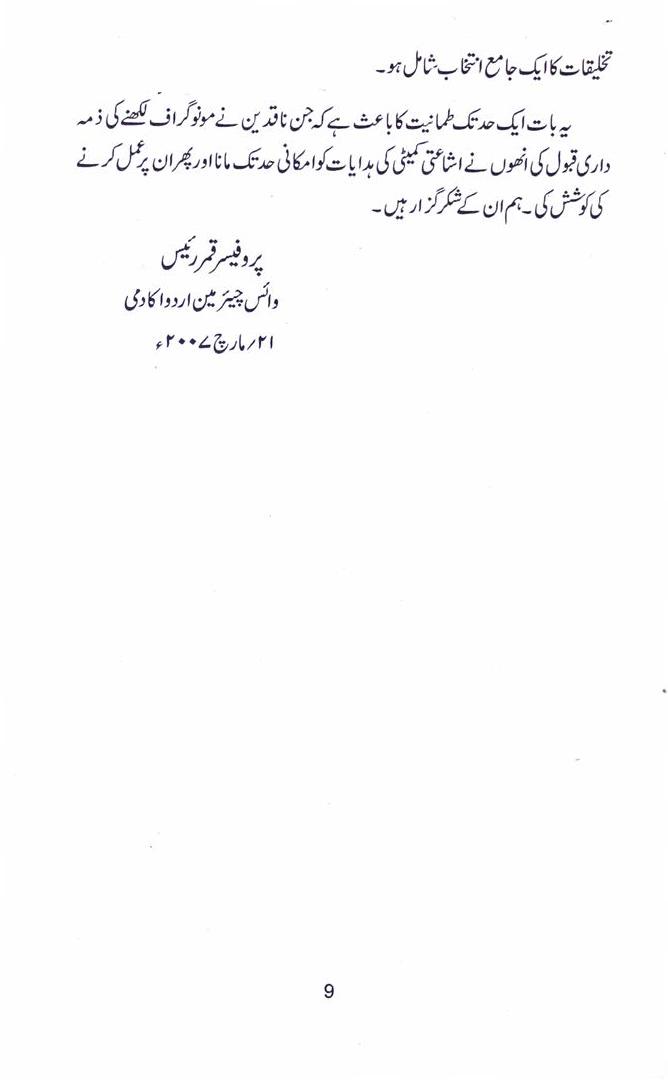 تخلیقات کا ایک جامع انتخاب شامل ہو۔
یہ بات ایک حد تک طمانیت کا باعث ہے کہ جن ناقدین نے مونوگراف لکھنے کی ذمہ
داری قبول کی انھوں نے اشاعتی کمیٹی کی ہدایات کو امکانی حد تک مانا اور پھر ان پر عمل کرنے
کی کوشش کی۔ ہم ان کے شکر گزار ہیں۔
پروفیسر قمر رئیس
وائس چیئر مین اردو اکادمی
۲۱/مارچ ۲۰۰۷ء
9